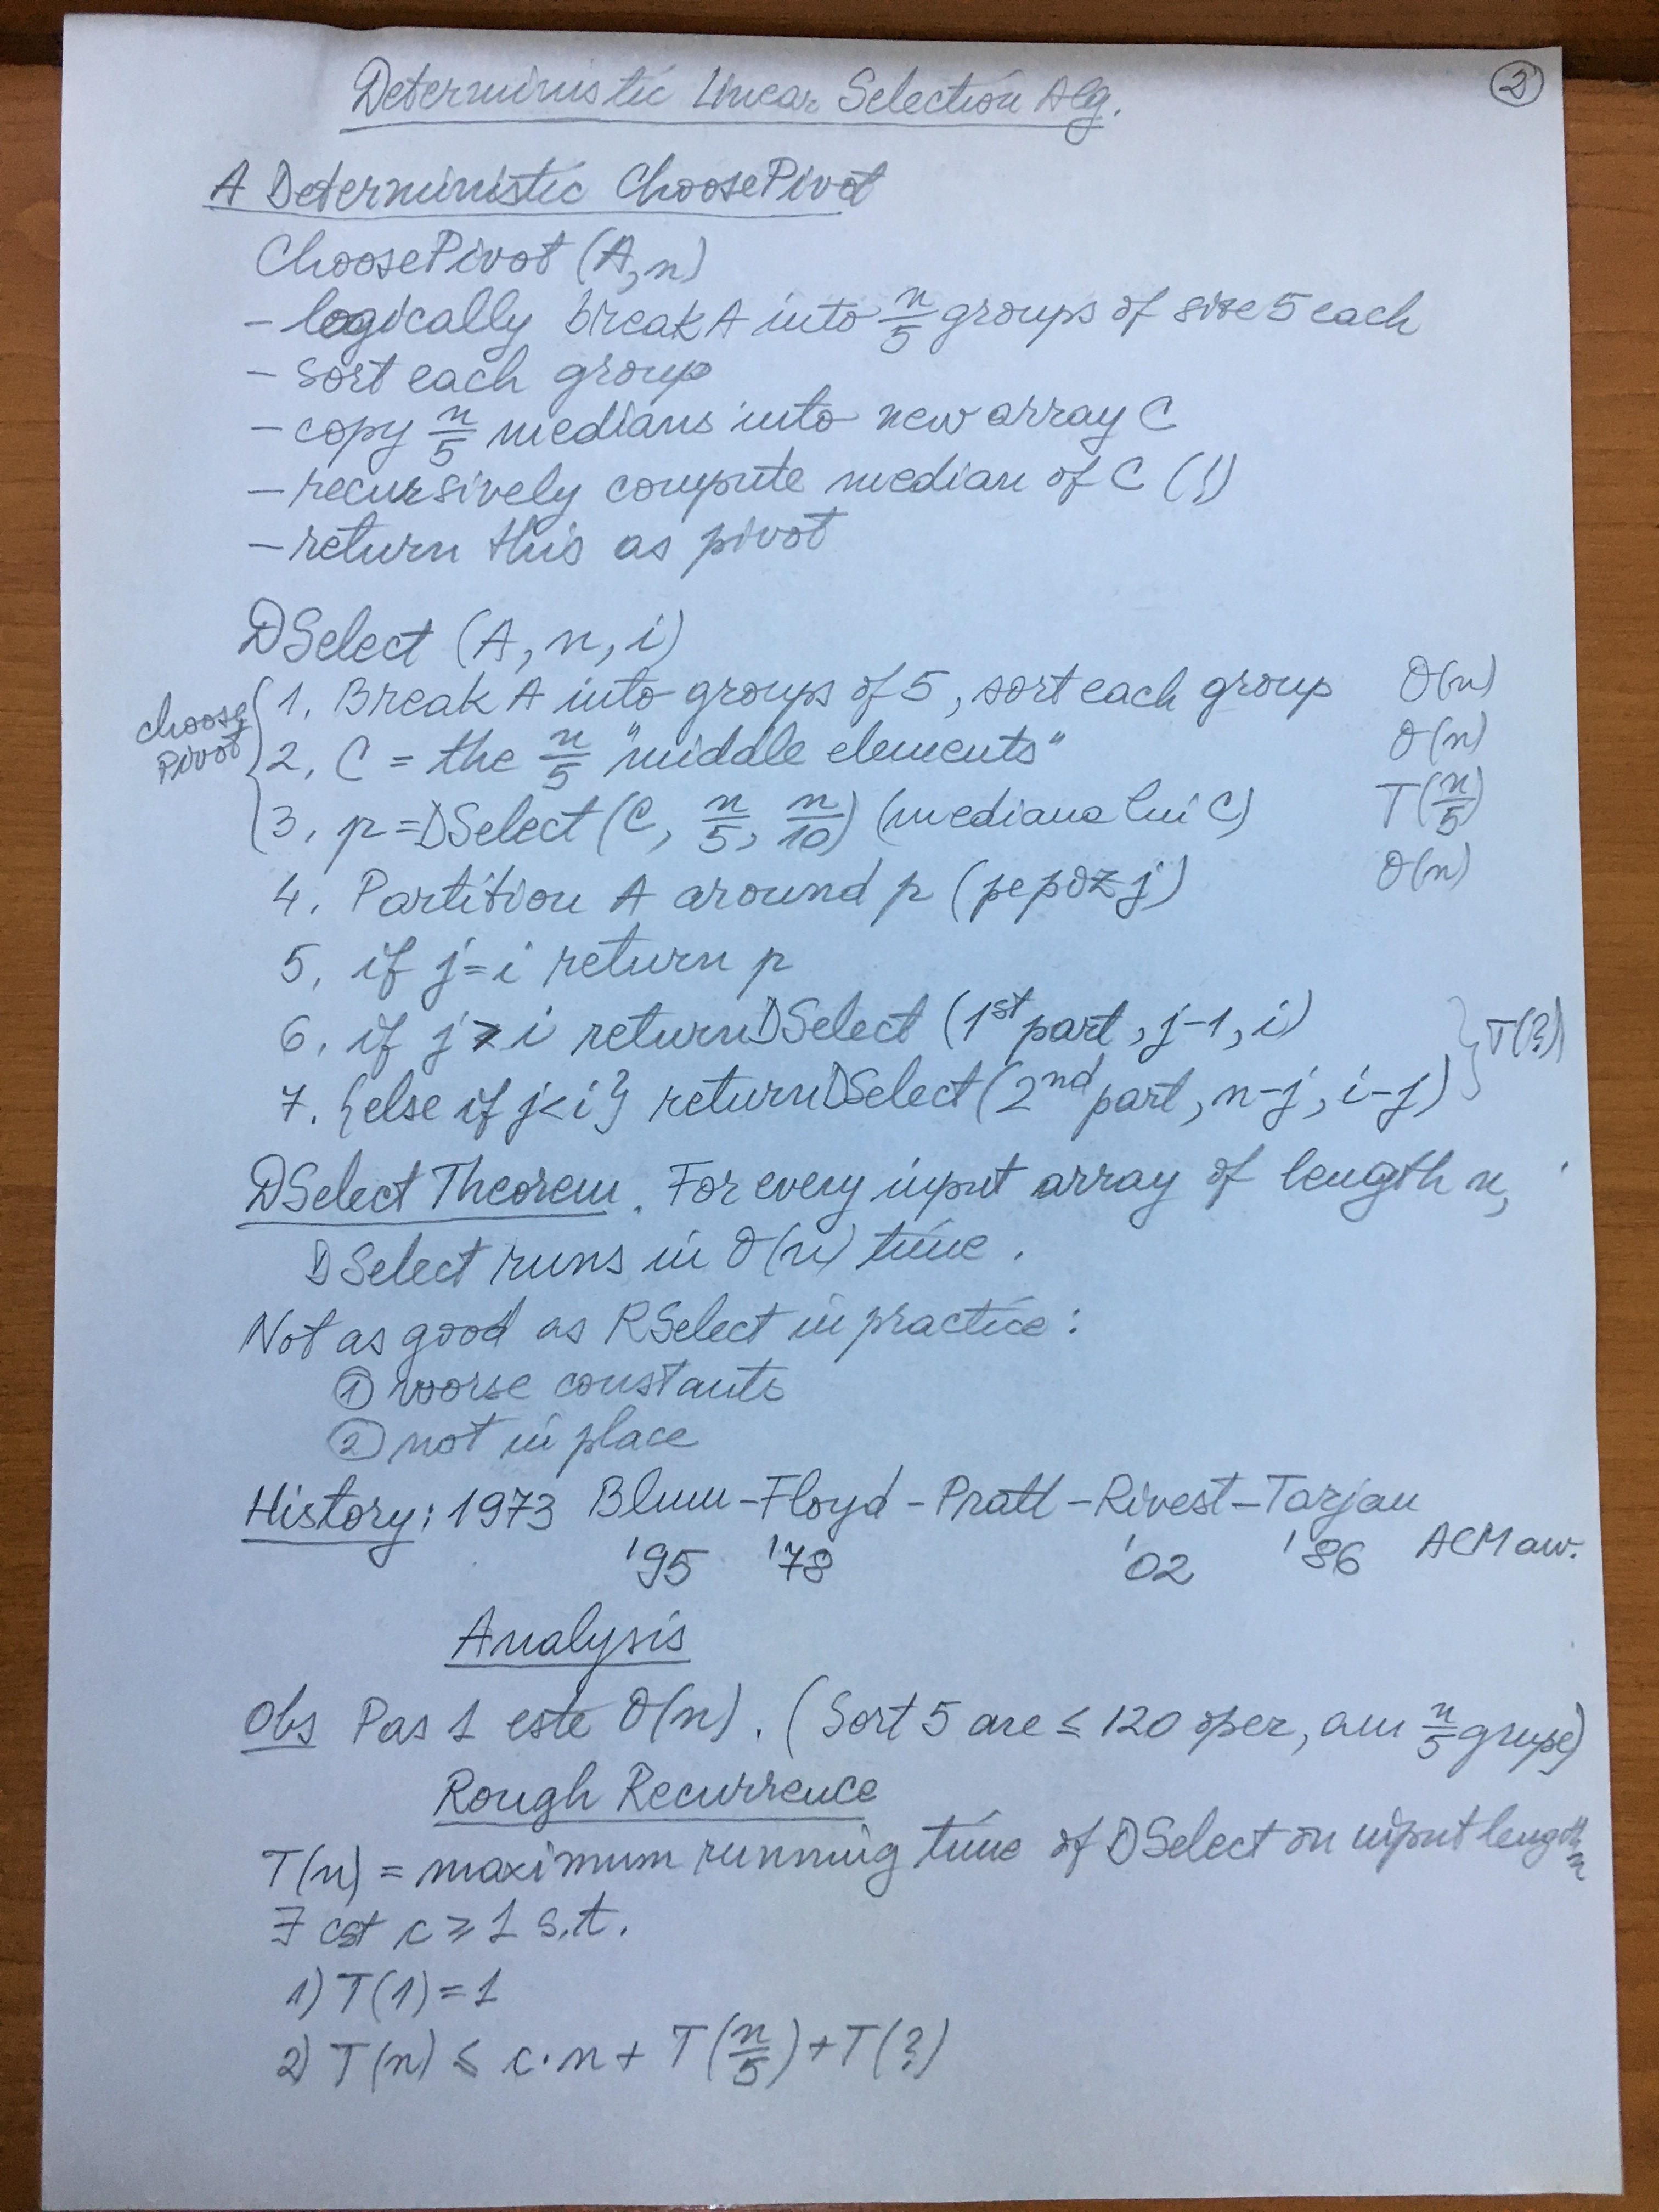 Deterministic Linear Selection Alg.
2
A Deterministic ChoosePivot
ChoosePivot (A, n)
- logically break A into n/5 groups of size 5 each
- sort each group
- copy n/5 medians into new array C
- recursively compute median of C (!)
- return this as pivot
DSelect (A, n, i)
choose Pivot
1. Break A into groups of 5, sort each group O(n)
2. C = the n/5 "middle elements" O(n)
3. p = DSelect (C, n/5, n/10) (mediana lui C) T(n/5)
4. Partition A around p (pe poz j) O(n)
5. if j = i return p
6. if j > i return DSelect (1st part, j-1, i)
7. {else if j < i} return DSelect (2nd part, n-j, i-j) } T(?)
DSelect Theorem. For every input array of length n,
DSelect runs in O(n) time.
Not as good as RSelect in practice:
① worse constants
② not in place
History: 1973 Blum - Floyd - Pratt - Rivest - Tarjan
'95 '78 '02 '86 ACM aw.
Analysis
Obs Pas 1 este O(n). (Sort 5 are ≤ 120 oper, am n/5 grupe)
Rough Recurrence
T(n) = maximum running time of DSelect on input length n
∃ cst c ≥ 1 s.t.
1) T(1) = 1
2) T(n) ≤ c·n + T(n/5) + T(?)